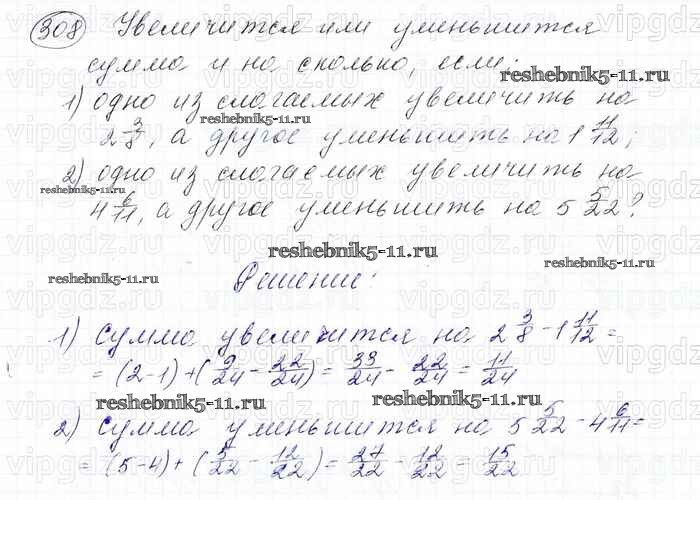 308 Увеличится или уменьшится
сумма и на сколько, если:
reshebnik5-11.ru
1) одно из слагаемых увеличить на
reshebnik5-11.ru
2 3/8, а другое уменьшить на 1 11/12;
2) одно из слагаемых увеличить на
reshebnik5-11.ru
4 6/11, а другое уменьшить на 5 5/22?
reshebnik5-11.ru
reshebnik5-11.ru
reshebnik5-11.ru
Решение:
1) Сумма увеличится на 2 3/8 - 1 11/12 =
= (2-1) + (9/24 - 22/24) = 33/24 - 22/24 = 11/24
reshebnik5-11.ru
reshebnik5-11.ru
2) Сумма уменьшится на 5 5/22 - 4 6/11 =
= (5-4) + (5/22 - 12/22) = 27/22 - 12/22 = 15/22
vipgdz.ru